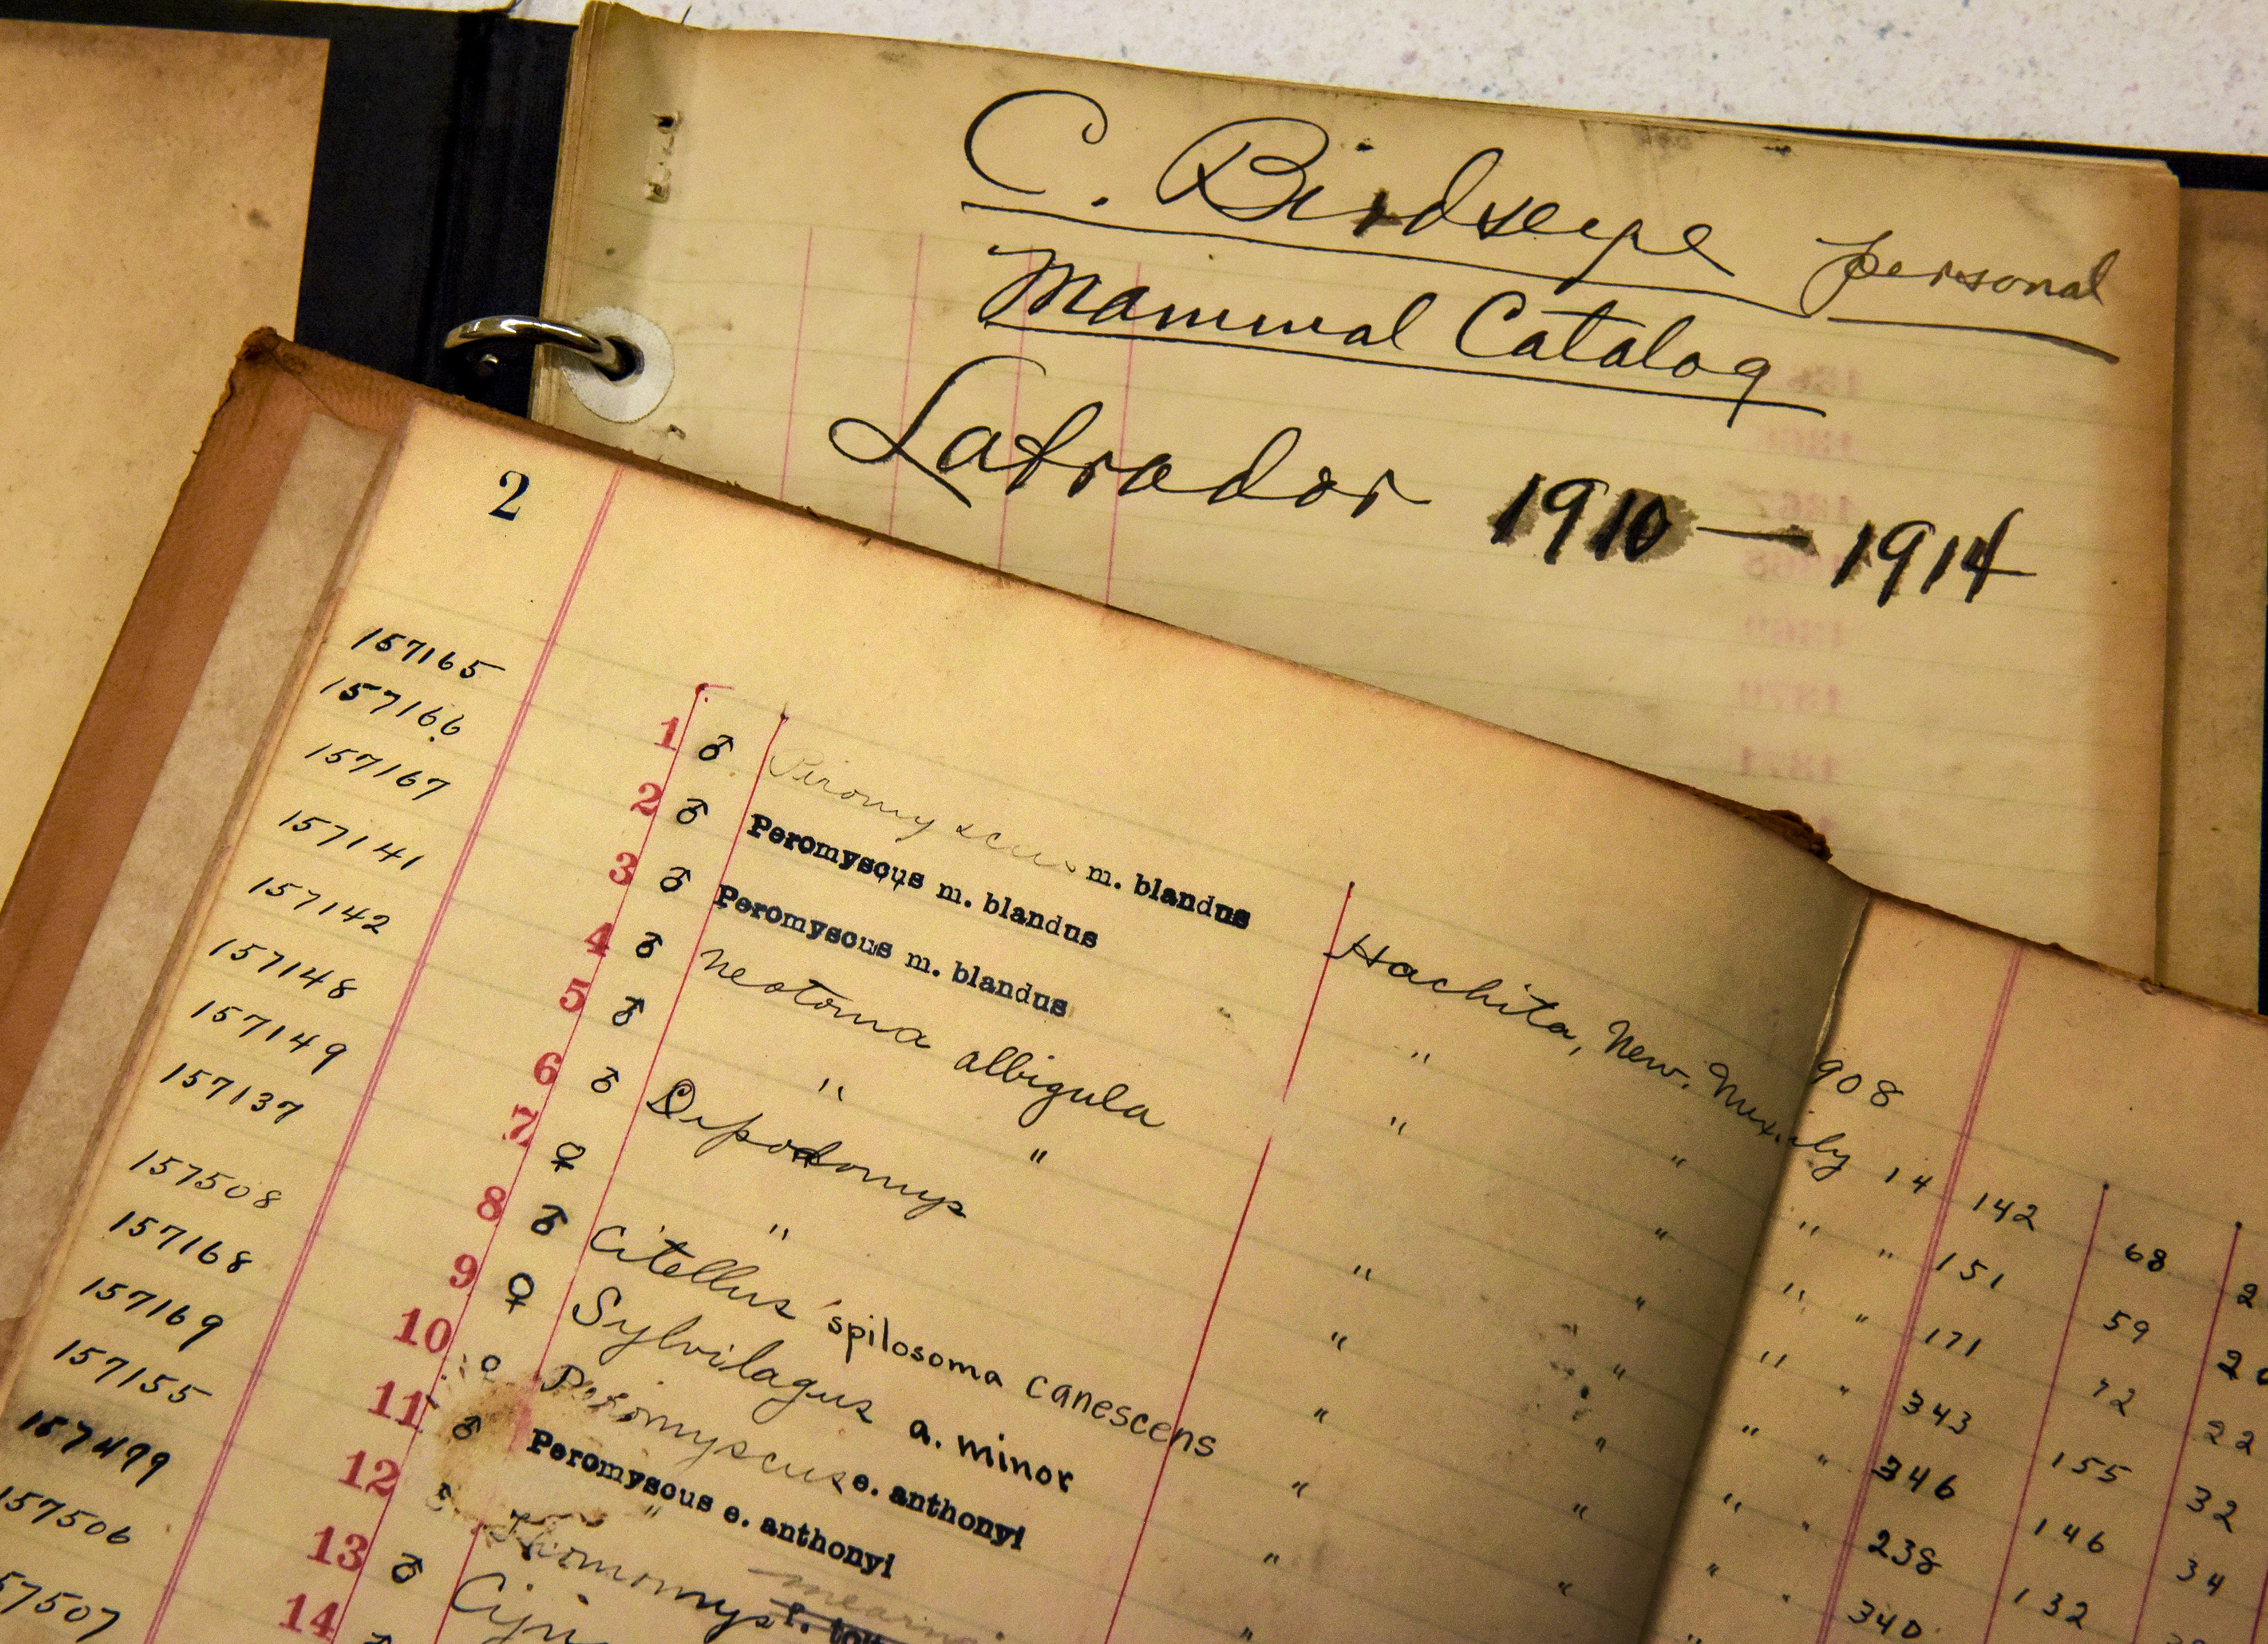 C. Birdseye personal
Mammal Catalog
Labrador 1910 — 1914
2
157165 1 ♂ Peromyscus m. blandus Hachita, New. Mex. 908
157166 2 ♂ Peromyscus m. blandus " " July 14 142 68 2
157167 3 ♂ Peromyscus m. blandus " " " " 151 59 20
157141 4 ♂ Neotoma albigula " " " " 171 72 22
157142 5 ♂ " " " " " " 343 155 32
157148 6 ♂ Dipodomys " " " " 346 146 34
157149 7 ♀ " " " " " 238 132
157137 8 ♂ Citellus spilosoma canescens " " " " 340
157508 9 ♀ Sylvilagus a. minor " "
157168 10 ♀ Peromyscus e. anthonyi " "
157169 11 ♂ Peromyscus e. anthonyi "
157155 12 ♂ Thomomys
157499 13 ♂
157506 14 ♂
57507